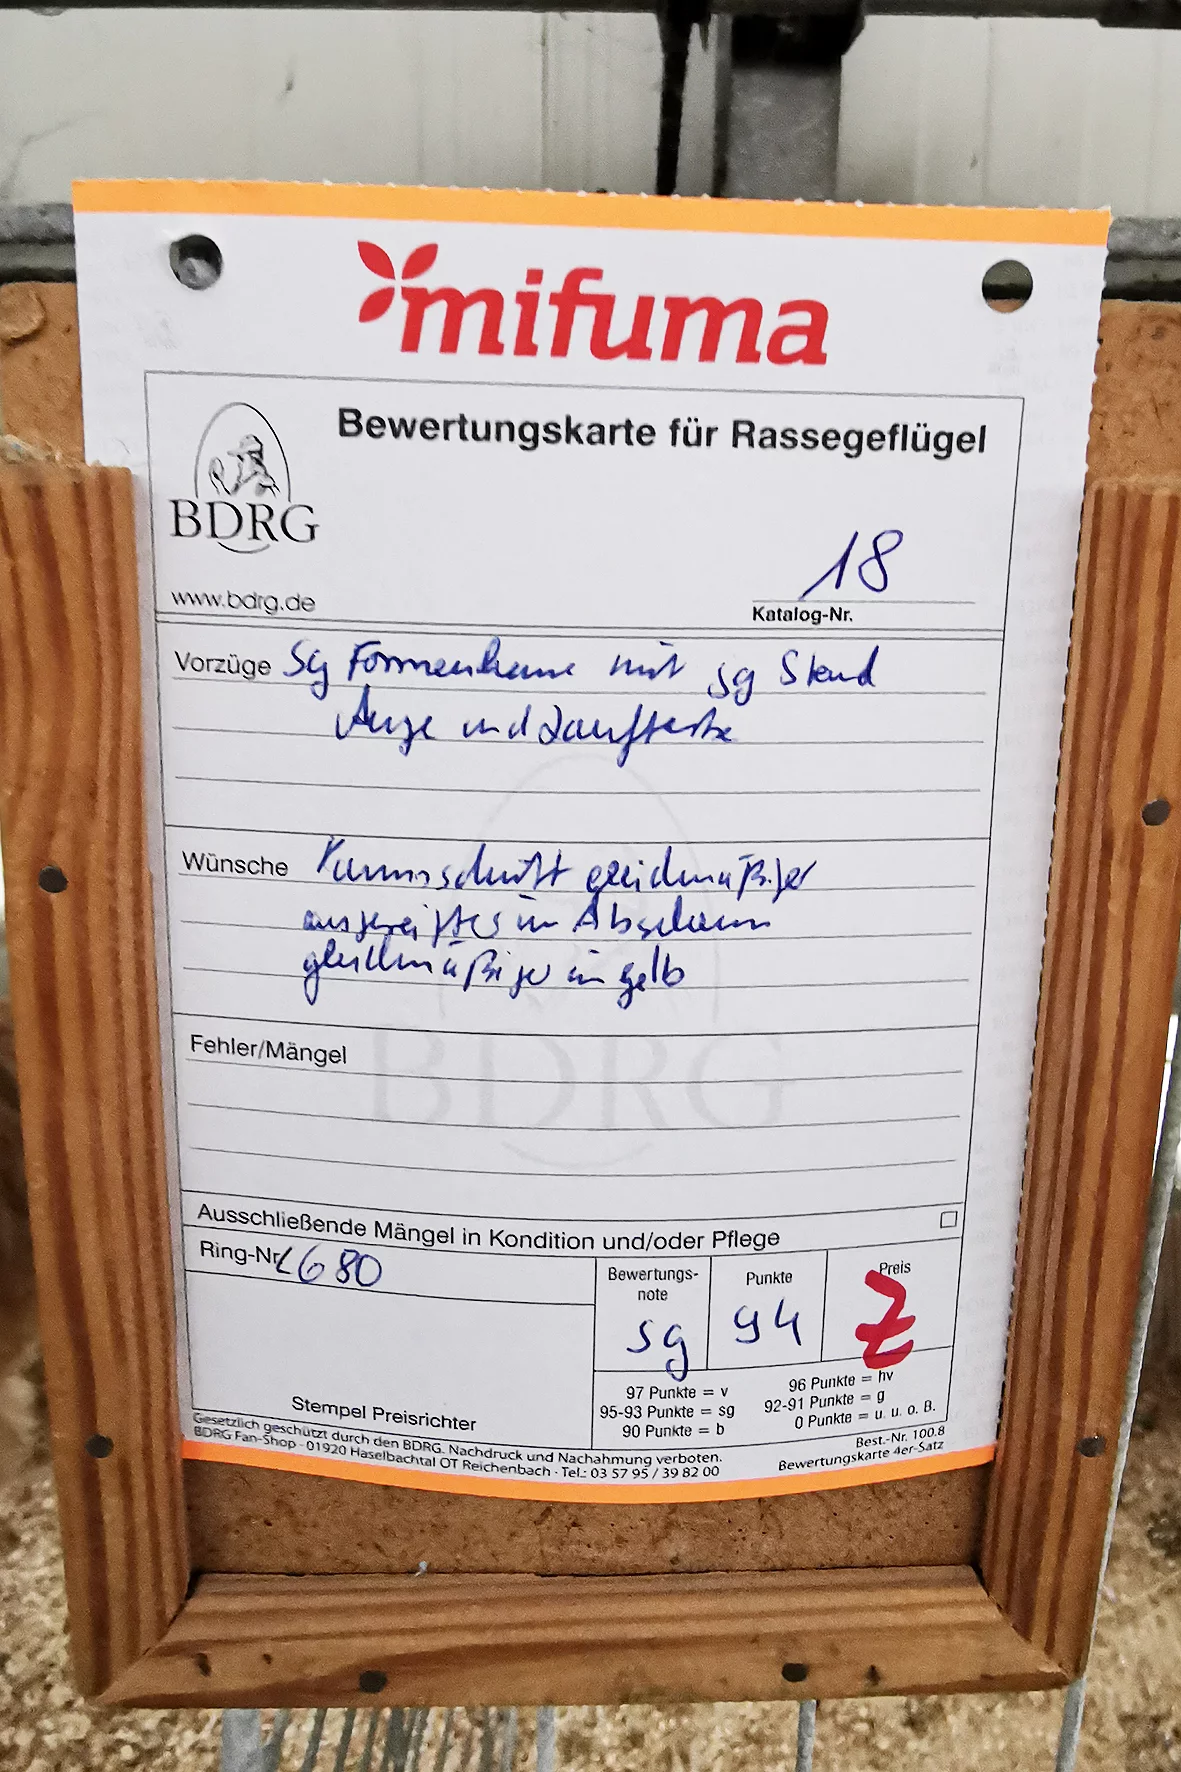 mifuma
Bewertungskarte für Rassegeflügel
BDRG
www.bdrg.de
18
Katalog-Nr.
Vorzüge Sg Formenhenne mit sg Stand
Auge und Lauffarbe
Wünsche Kammschnitt gleichmäßiger
ausgereiftes im
gleichmäßiger im gelb
BDRG
Fehler/Mängel
Ausschließende Mängel in Kondition und/oder Pflege
Ring-Nr. L680
Bewertungs-
note
sg
Punkte
94
Preis
Z
97 Punkte = v
95-93 Punkte = sg
90 Punkte = b
96 Punkte = hv
92-91 Punkte = g
0 Punkte = u. u. o. B.
Stempel Preisrichter
Gesetzlich geschützt durch den BDRG. Nachdruck und Nachahmung verboten.
BDRG Fan-Shop · 01920 Haselbachtal OT Reichenbach · Tel.: 03 57 95 / 39 82 00
Best.-Nr. 100.8
Bewertungskarte 4er-Satz